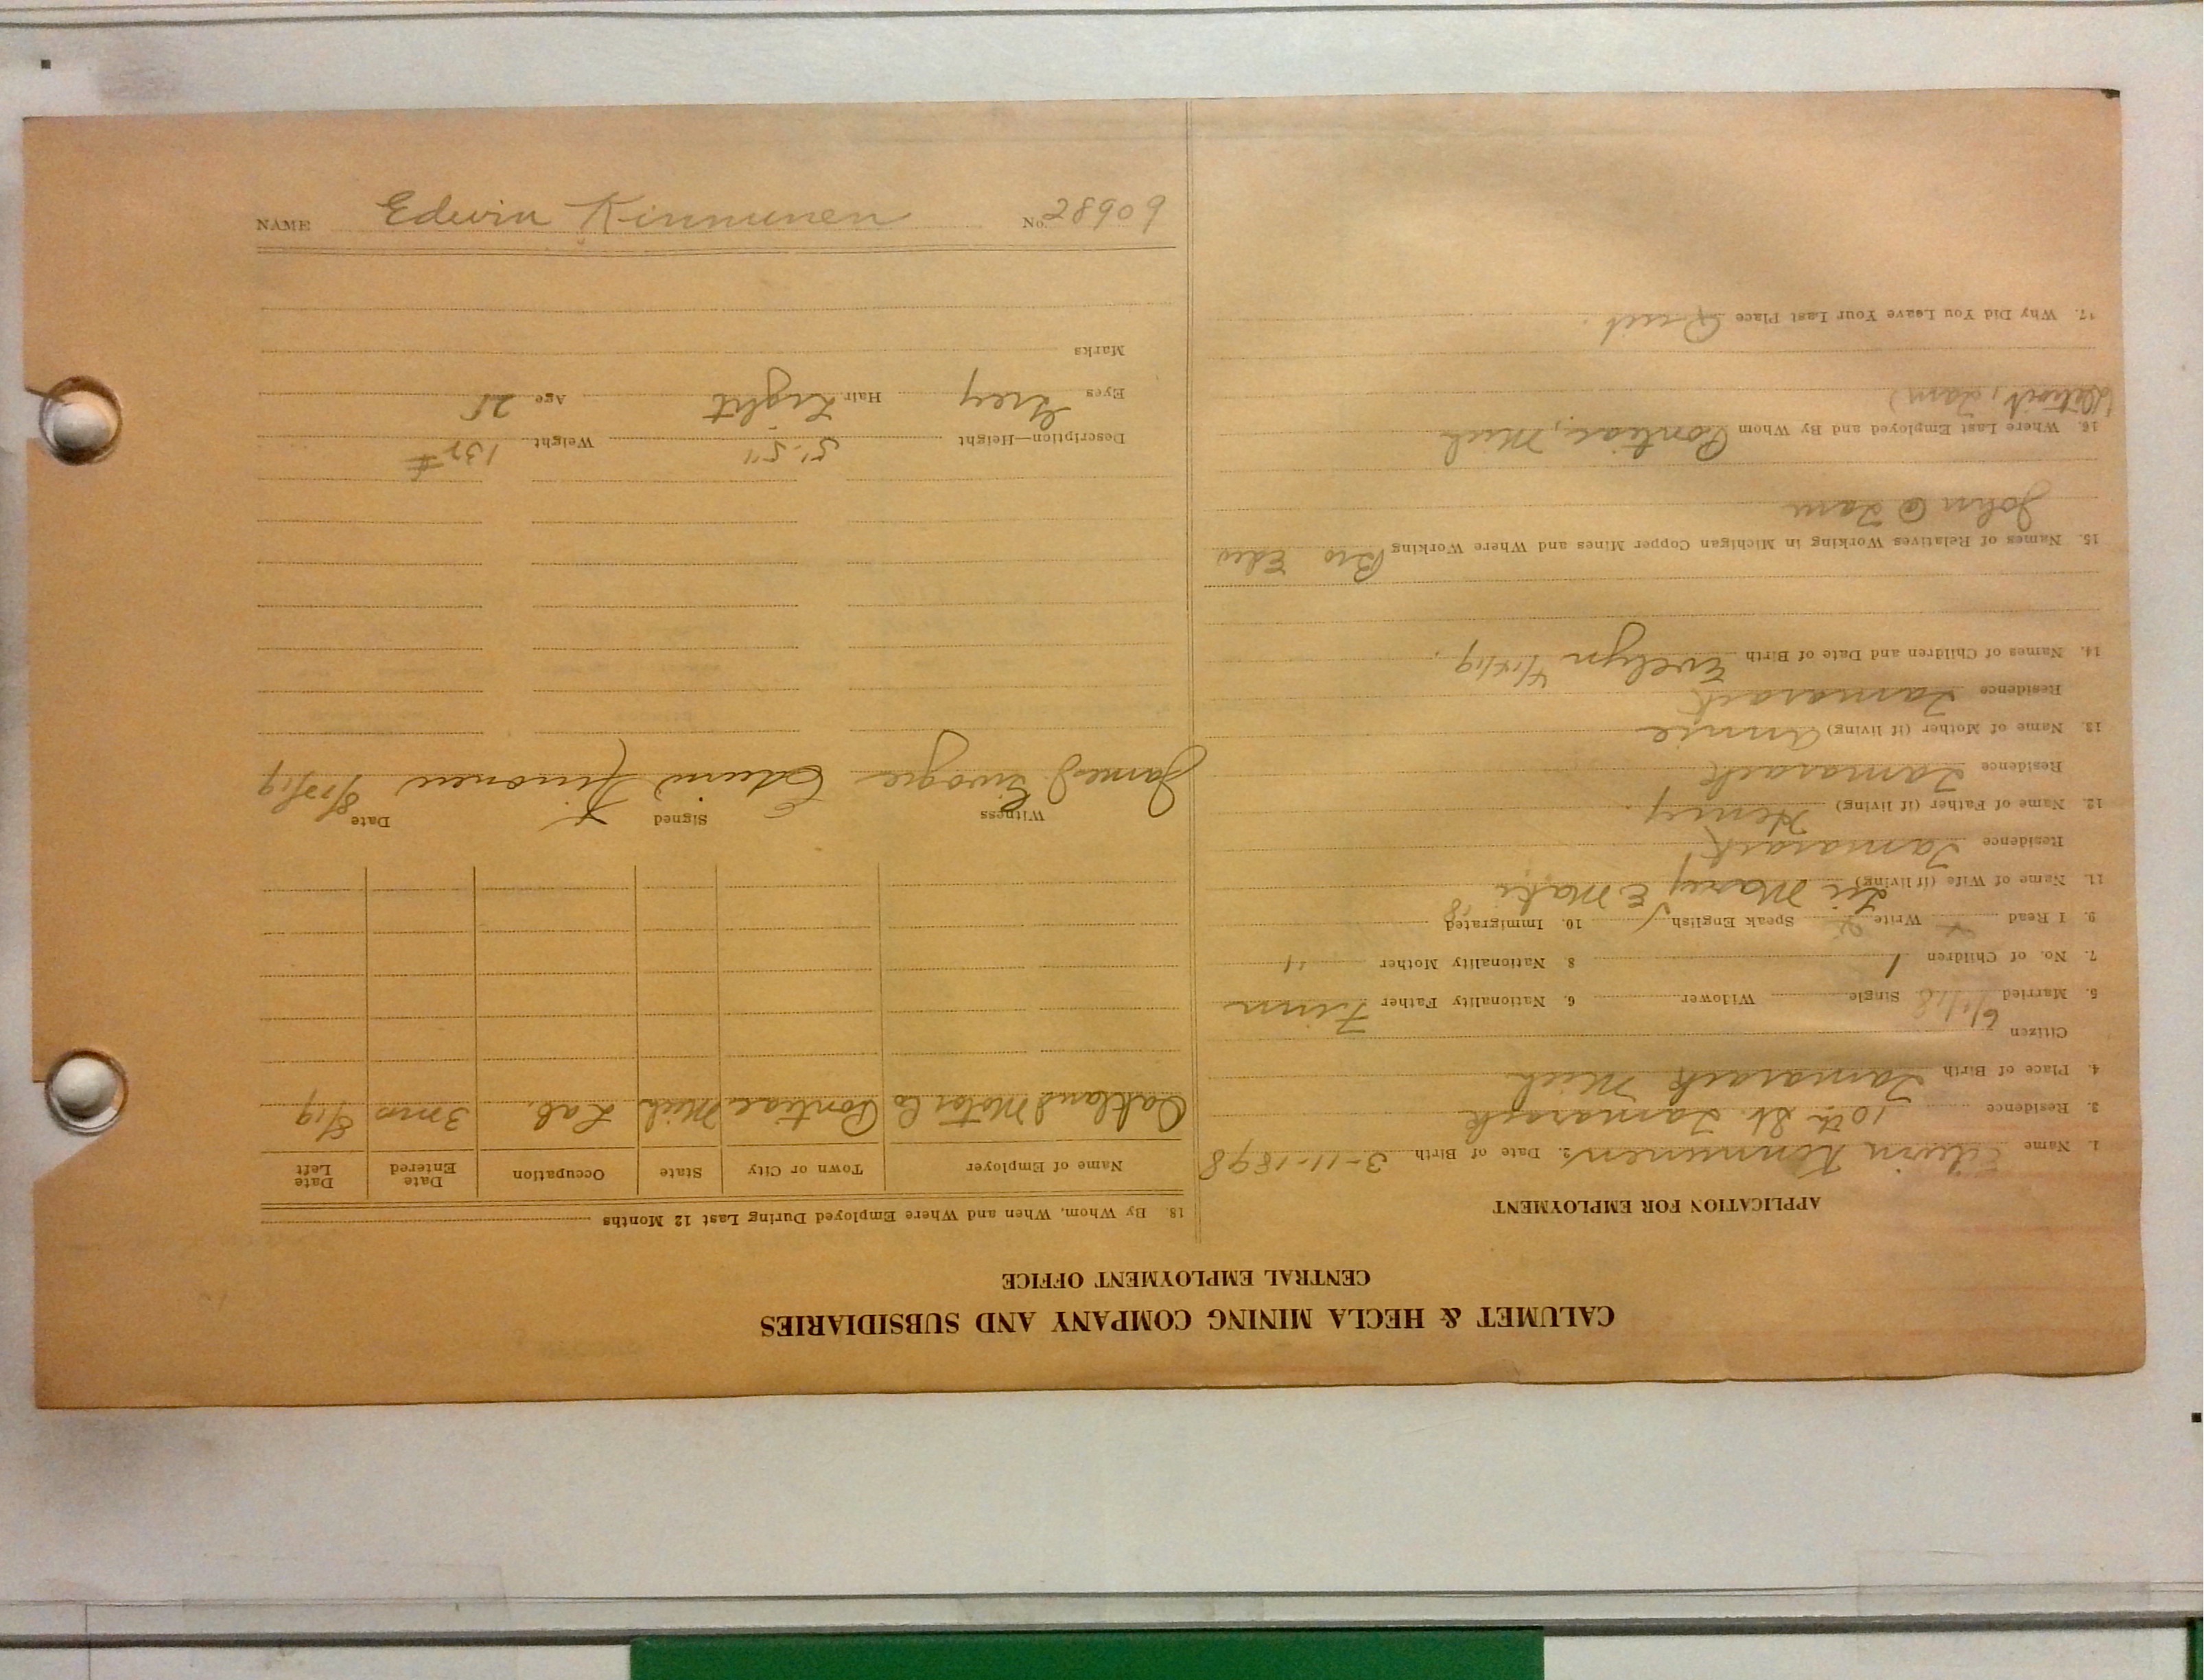 CALUMET & HECLA MINING COMPANY AND SUBSIDIARIES
CENTRAL EMPLOYMENT OFFICE
APPLICATION FOR EMPLOYMENT
1. Name Edwin Kinnunen 2. Date of Birth 3-11-1898
3. Residence 10th St. Tamarack
4. Place of Birth Tamarack Mich
Citizen
5. Married 6/1/18 Single Widower 6. Nationality Father Finn
7. No. of Children 1 8 Nationality Mother "
9. I Read Write Speak English 10. Immigrated
11. Name of Wife (if living) Mary E Maki
Residence Tamarack
12. Name of Father (if living) Henry
Residence Tamarack
13. Name of Mother (if living) Annie
Residence Tamarack
14. Names of Children and Date of Birth Evelyn
15. Names of Relatives Working in Michigan Copper Mines and Where Working Bro
John @ Tam
16. Where Last Employed and By Whom Pontiac, Mich
17. Why Did You Leave Your Last Place Quit
18. By Whom, When and Where Employed During Last 12 Months
Name of Employer Town or City State Occupation Date Entered Date Left
Oakland Motor Co Pontiac Mich Lab. 3 mos 8/19
Witness Signed Date
James Edwin Kinonen
Description—Height 5'-5" Weight
Eyes Grey Hair Light Age 21
Marks
NAME Edwin Kinnunen No. 28909